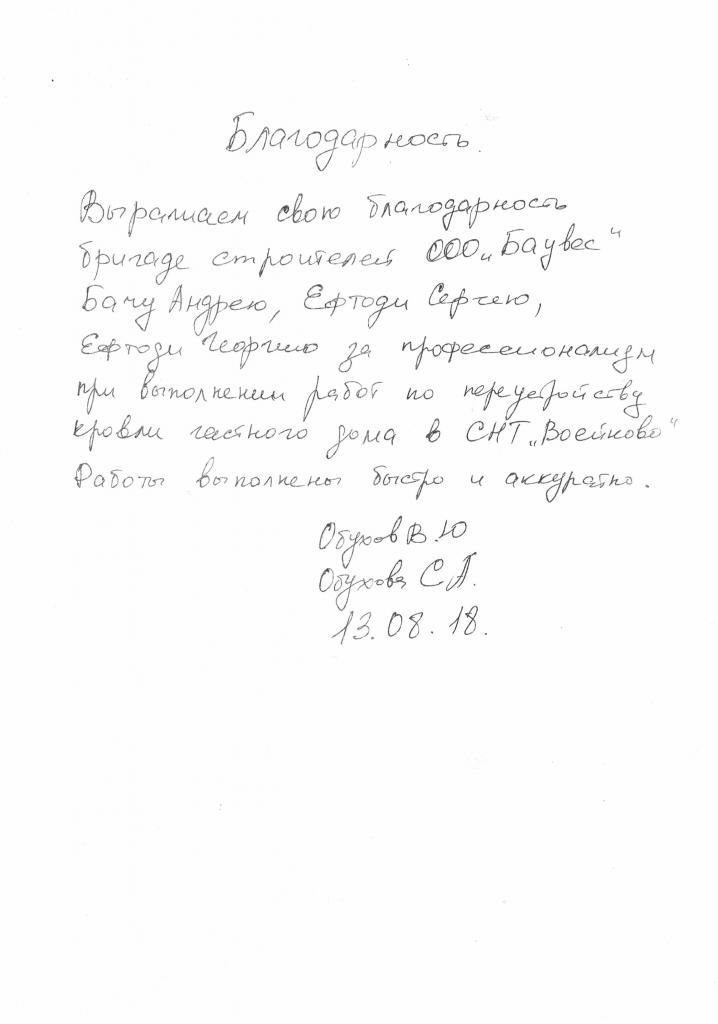 Благодарность.
Выражаем свою благодарность
бригаде строителей ООО „Баувес“
Бачу Андрею, Ефтоди Сергею,
Ефтоди Георгию за профессионализм
при выполнении работ по переустройству
кровли частного дома в СНТ „Воейково“
Работы выполнены быстро и аккуратно.
Обухов В.Ю
Обухова С.А.
13.08.18.